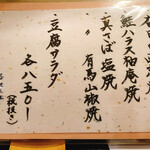 鮭ハラス柚庵焼
真さば塩焼
〃 有馬山椒焼
豆腐サラダ
各八五〇ー
(税抜き)